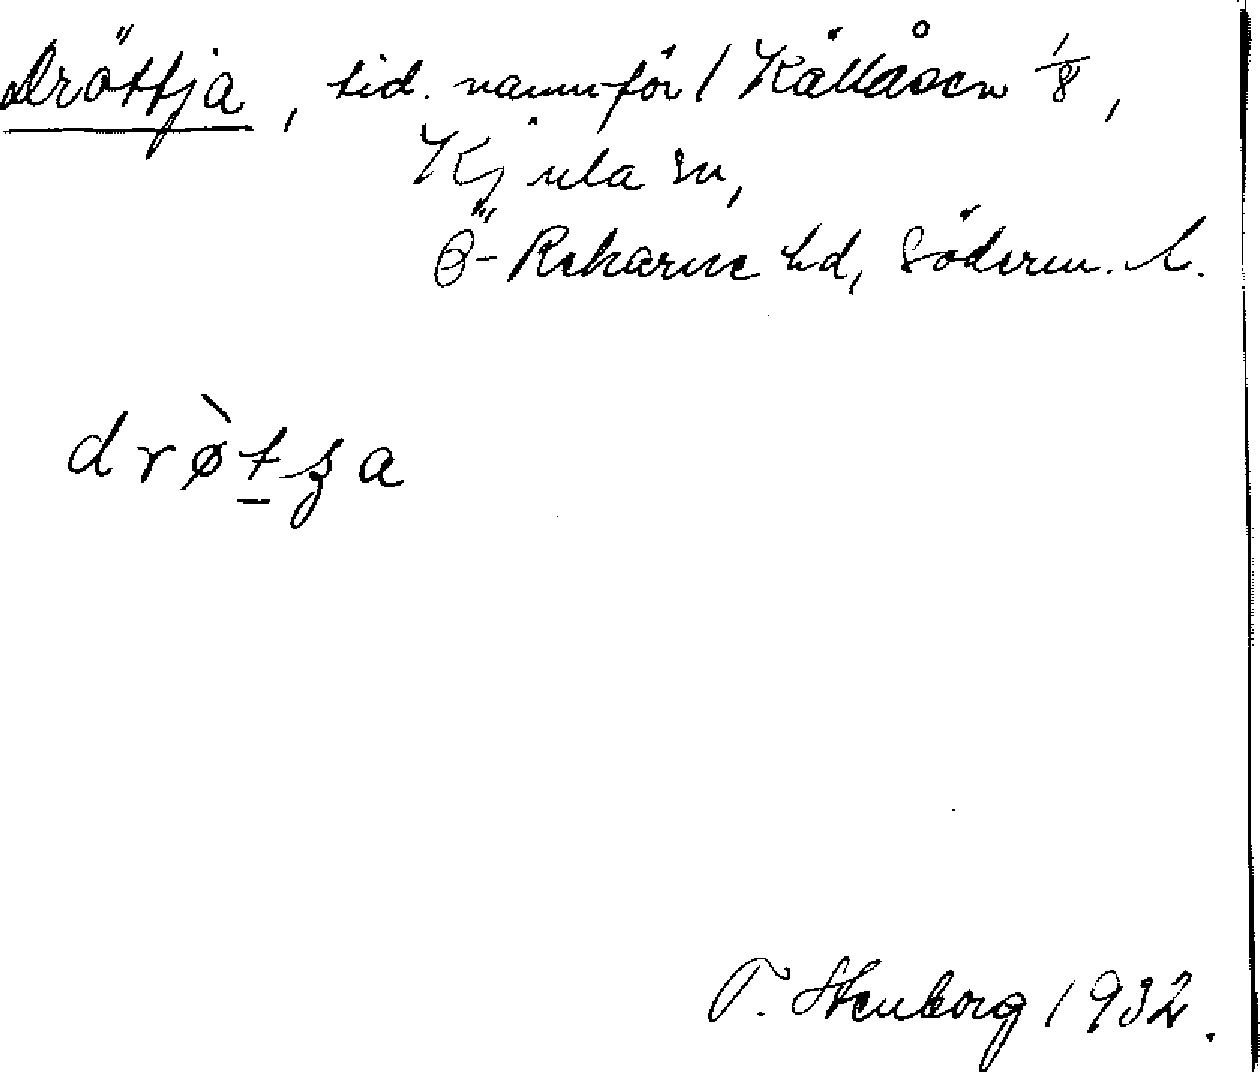 Dröttja, tid. namn för 1 Källåsen 1/8,
Kjula sn,
Ö-Rekarne hd, Söderm. l.
drø̀tʒa
T. Stenborg 1932.